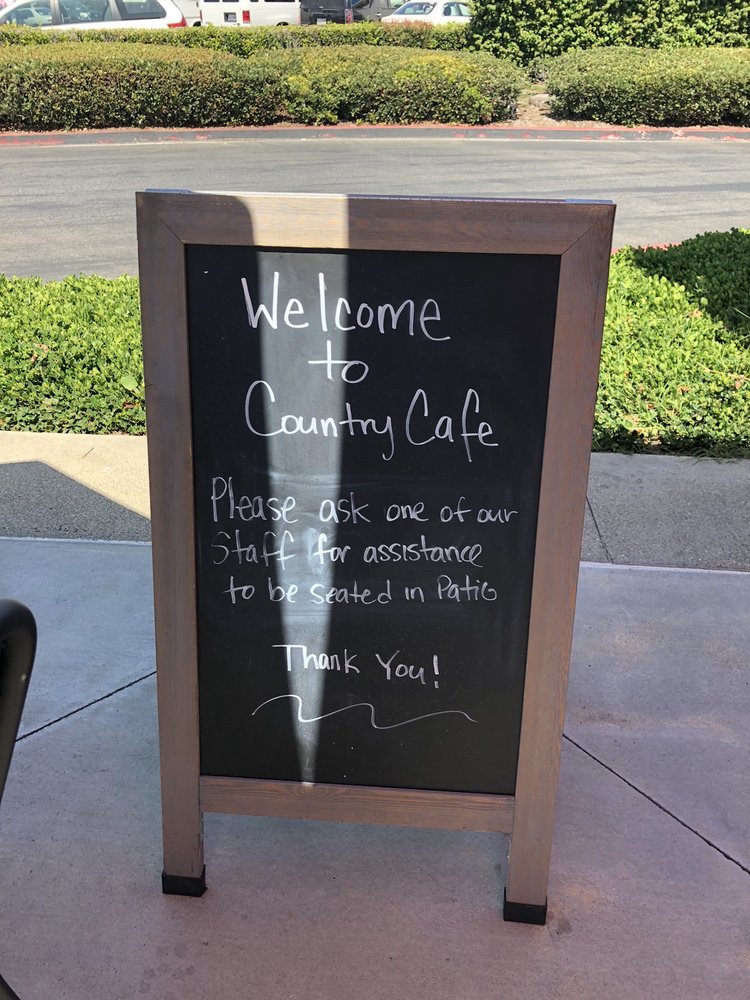 Welcome
to
Country Cafe
Please ask one of our
Staff for assistance
to be seated in Patio
Thank You!